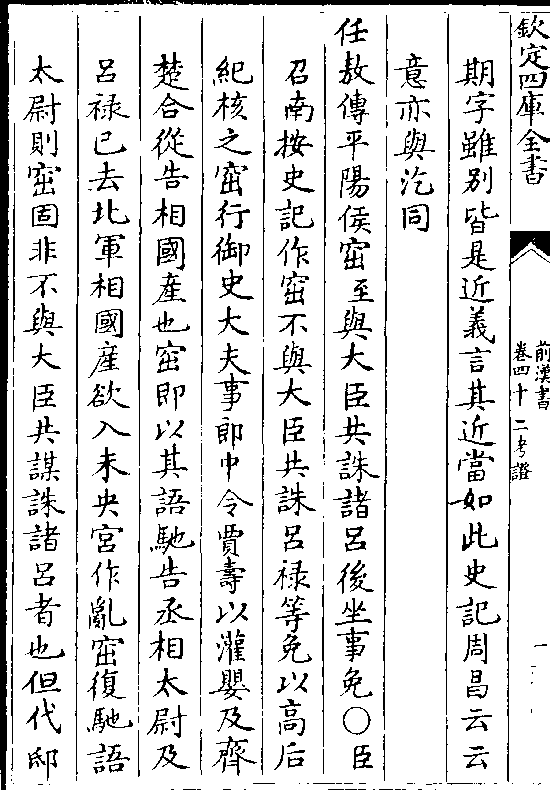 欽定四庫全書
前漢書
卷四十二考證
一
期字雖別皆是近義言其近當如此史記周昌云云
意亦與汔同
任敖傳平陽侯窋至與大臣共誅諸呂後坐事免○臣
召南按史記作窋不與大臣共誅呂祿等免以高后
紀核之窋行御史大夫事郎中令賈壽以灌嬰及齊
楚合從告相國產也窋即以其語馳告丞相太尉及
呂祿已去北軍相國產欲入未央宮作亂窋復馳語
太尉則窋固非不與大臣共謀誅諸呂者也但代邸